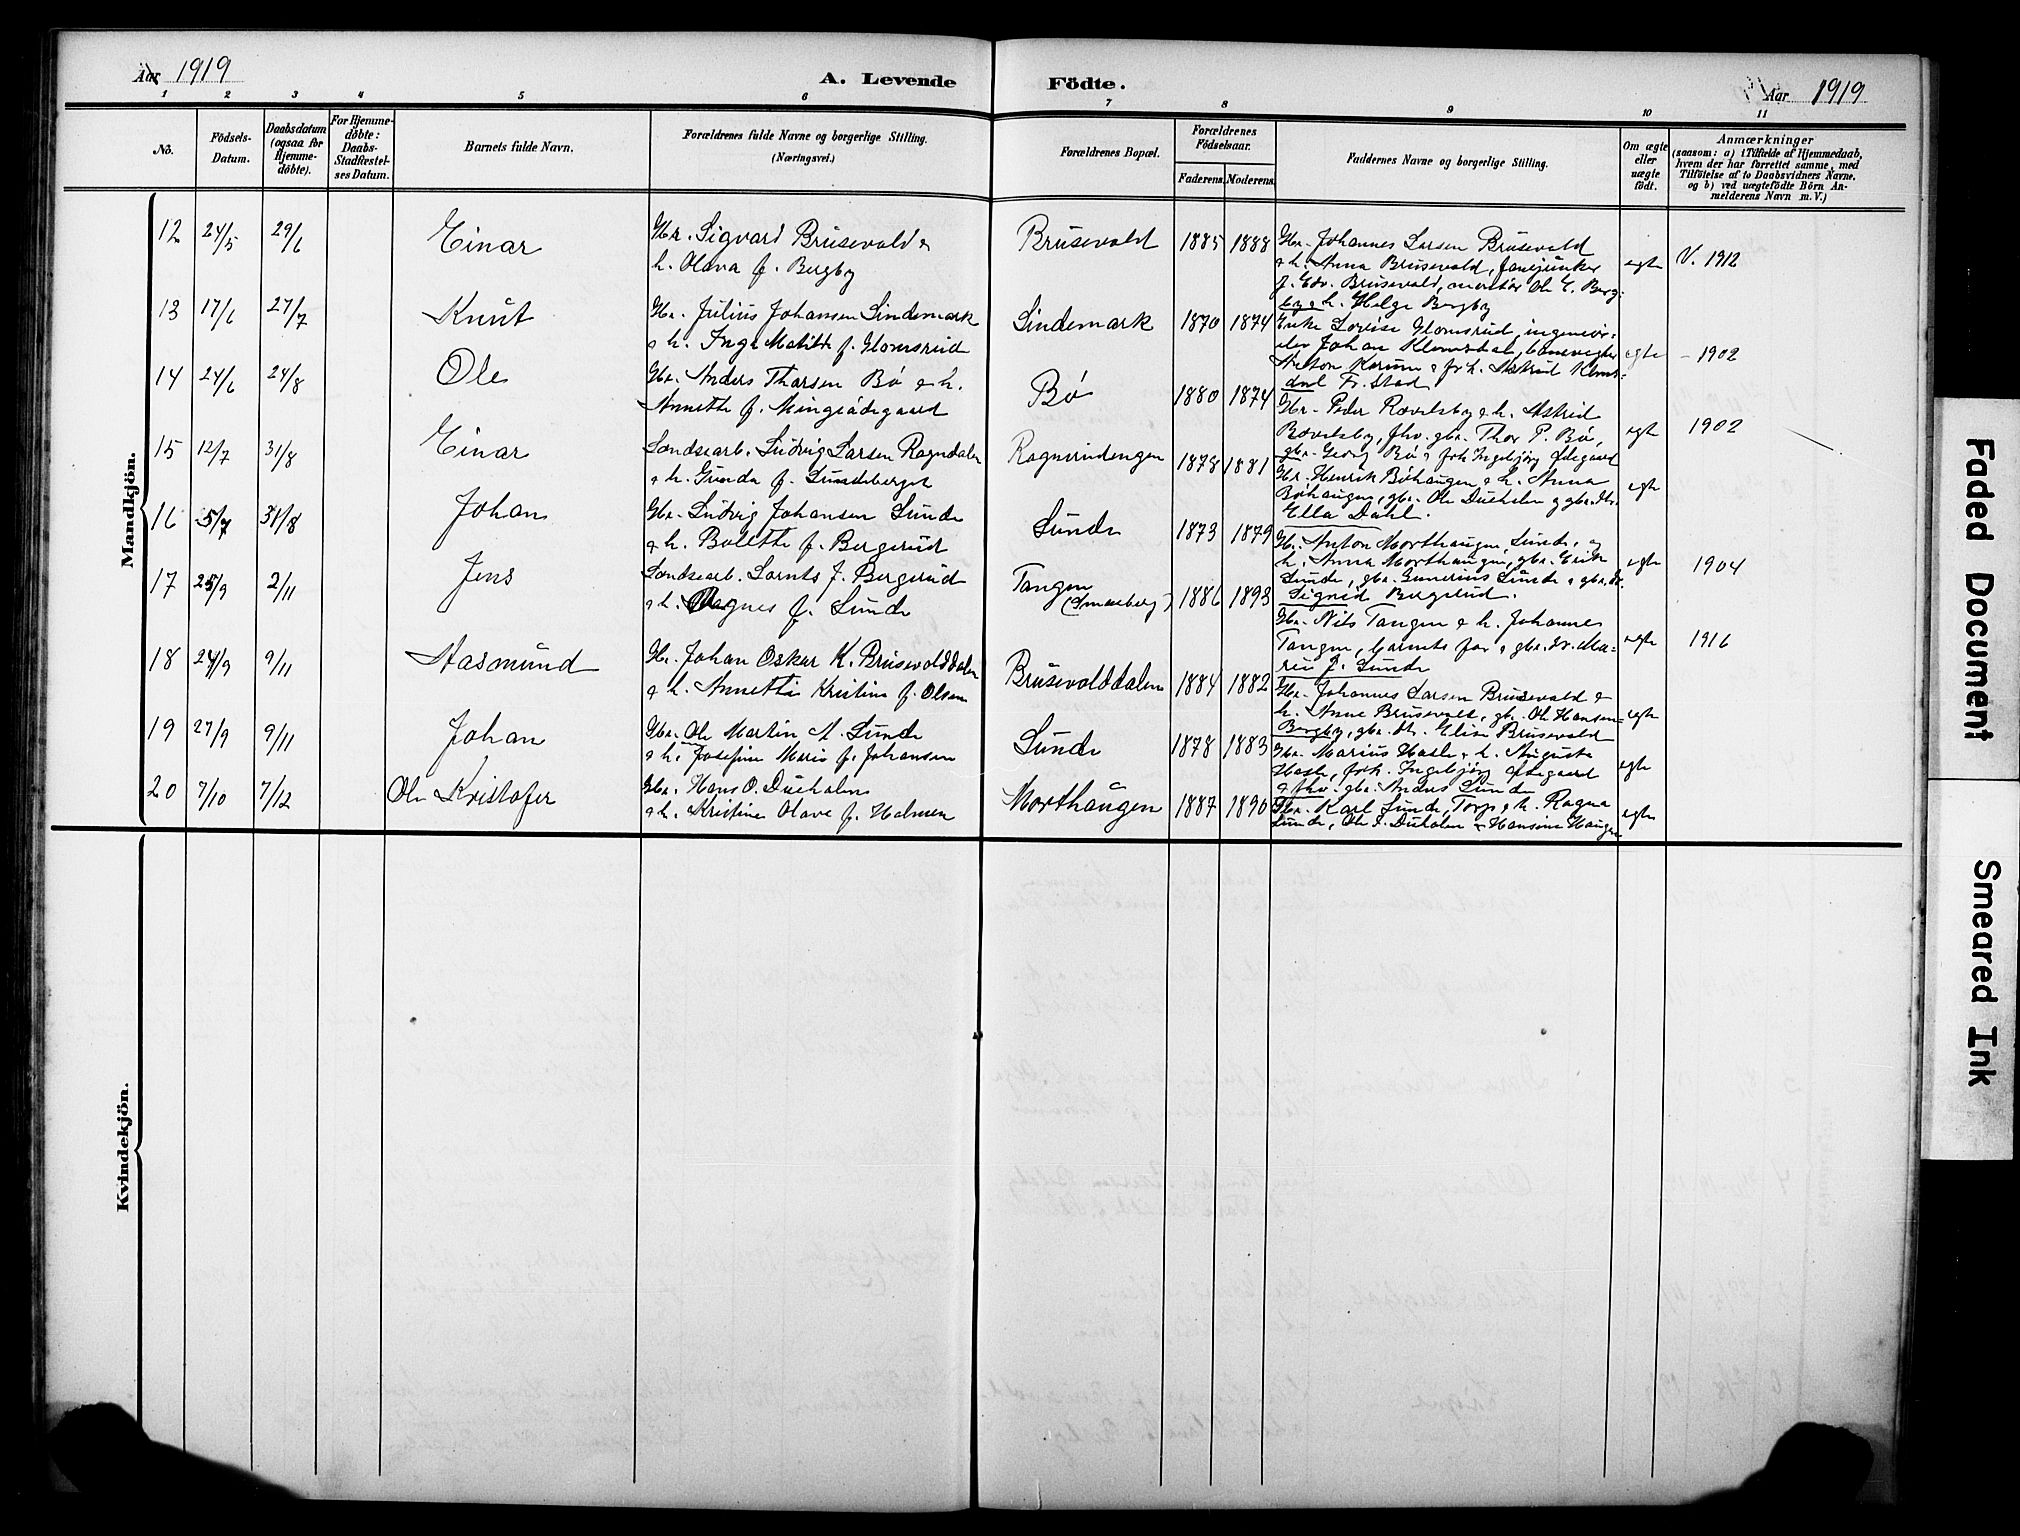 Aar 1919
A. Levende Födte.
Aar 1919
1 2 3 4 5 6 7 8 9 10 11
No.
Födsels-Datum.
Daabsdatum (ogsaa for Hjemme-döbte).
For Hjemme-döbte: Daabs-Stadfæstel-ses Datum.
Barnets fulde Navn.
Forældrenes fulde Navne og borgerlige Stilling.
(Næringsvei.)
Forældrenes Bopæl.
Forældrenes Födselsaar.
Faderens. Moderens.
Faddernes Navne og borgerlige Stilling.
Om ægte eller uægte födt.
Anmærkninger
(saasom: a) i Tilfælde af Hjemmedaab,
hvem der har forrettet samme, med
Tilföielse af to Daabsvidners Navne,
og b) ved uægtefödte Börn An-
melderens Navn m. V.)
Mandkjön.
12 24/5 29/6 Einar
Gbr. Sigvard Brusevold &
h. Olava f. Bergby
Brusevold 1885 1888
Gbr. Johannes Larsen Brusevold
& h. Anna Brusevold, fanejunker
J. Edv. Brusevold, montør Ole E. Berg-
by & h. Helga Bergby
egte V. 1912
13 17/6 27/7 Knut
Gbr. Julius Johansen Lindemark
& h. Inga Matilde f. Glomsrud
Lindemark 1870 1874
Enke Lovise Glomsrud, ingeniør-
elev Johan Klemsdal, banevogter
Anton Karum & frk. Astrid Klems-
dal Fr.stad
egte - 1902
14 24/6 24/8 Ole
Gbr. Anders Thorsen Bø & h.
Annette f. Mingeødegaard
Bø 1880 1874
Gbr. Peder Rovelsby & h. Astrid
Rovelsby, fhv. gbr. Thor P. Bø,
gbr. Georg Bø & frk Ingebjørg Ødegaard
egte 1902
15 12/7 31/8 Einar
Landsearb. Ludvig Larsen Ragndalen
& h. Gunda f. Sundsberget
1878 1881
Gbr. Henrik Bøhaugen & h. Anna
Bøhaugen, gbr. Ole Dueholen & gbr.dtr.
Ella Dahl.
egte
16 5/7 31/8 Johan
Gbr. Ludvig Johansen Sunde
& h. Bolette f. Bergerud
Sunde 1873 1879
Gbr. Anton Morthaugen, Sunde, og
h. Anna Morthaugen, gbr. Erik
Sunde, gbr. Gunerius Sunde & gbr.dr.
Sigrid Bergerud.
egte 1904
17 25/9 2/11 Jens
Landsearb. Lornts J. Bergerud
& h. Magnes f. Sunde
Tangen
(Smaaberg) 1886 1893
Gbr. Nils Tangen & h. Johannes
Tangen, barnets far & gbr.dr. Ma-
rie J. Sunde
egte 1916
18 24/9 9/11 Aasmund
Gbr. Johan Oskar K. Brusevolddalen
& h. Annette Kristine f. Olsen
Brusevolddalen 1884 1882
Gbr. Johannes Larsen Brusevold &
h. Anne Brusevold, gbr. Ole Hansen
Bergby, gbr. dtr. Elise Brusevold
egte
19 27/9 9/11 Johan
Gbr. Ole Martin A. Sunde
& h. Josefine Marie f. Johansen
Sunde 1878 1883
Gbr. Marius Hasle & h. Augusta
Hasle, frk. Ingebjørg Ødegaard
& fhv. gbr. Anders Sunde
egte
20 7/10 7/12 Ole Kristofer
Gbr. Hans O. Dueholen
& h. Kristine Olave f. Holmen
Morthaugen 1887 1890
Gbr. Karl Sunde, Torp & h. Ragna
Sunde, Ole J. Dueholen & Hansine Haugen
egte
Kvindekjön.
Faded Document
Smeared Ink